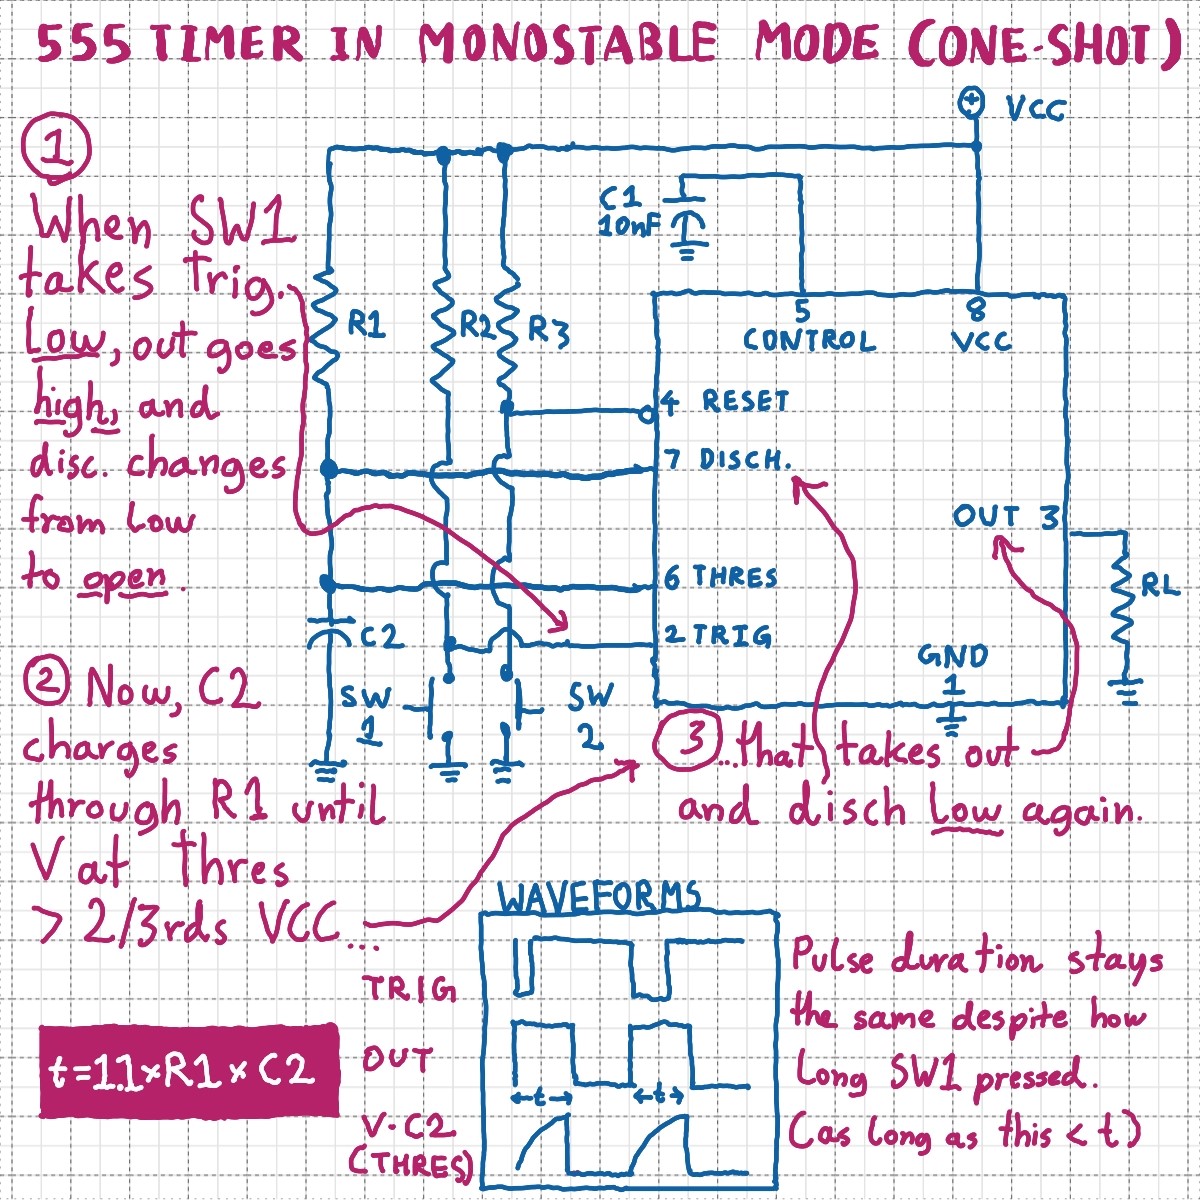 555 TIMER IN MONOSTABLE MODE (ONE-SHOT)
VCC
1
When SW1
takes Trig.
Low, out goes
high, and
disc. changes
from Low
to open.
C1
10nF
R1
R2
R3
5
CONTROL
8
VCC
4 RESET
7 DISCH.
OUT 3
6 THRES
2 TRIG
GND
1
RL
C2
SW
1
SW
2
2 Now, C2
charges
through R1 until
V at Thres
> 2/3rds VCC...
3 ...that takes out
and disch Low again.
t=1.1×R1×C2
WAVEFORMS
TRIG
OUT
t
t
V-C2
(THRES)
Pulse duration stays
the same despite how
Long SW1 pressed.
(as long as this < t)